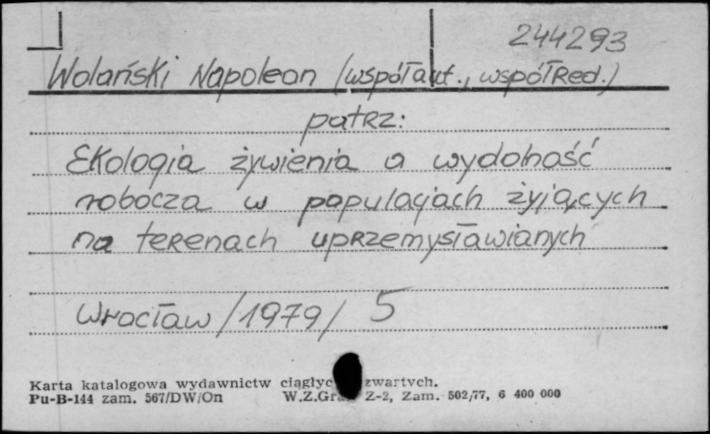 244293
Wolański Napoleon (współaut., współRed.)
patrz:
Ekologia żywienia a wydolność
robocza w populacjach żyjących
na terenach uprzemysławianych
Wrocław /1979/ 5
Karta katalogowa wydawnictw zwartych.
Pu-B-144 zam. 567/DW/On W.Z.Graf Z-2, Zam. 502/77, 6 400 000